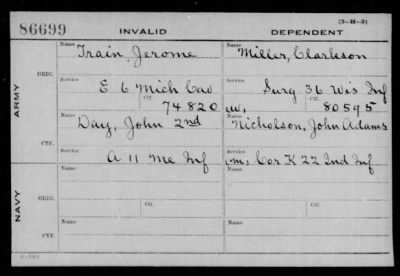 86699 INVALID DEPENDENT (3-H-3)
Name Name
Train, Jerome Miller, Clarkson
ORIG.
Service Service
E 6 Mich Cav Surg 36 Wis Inf
Ctf. Ctf.
74820 W, 80595
ARMY
Name Name
Day, John 2nd Nicholson, John Adams
CTF.
Service Service
A 11 Me Inf m, Cor K 22 Ind Inf
Name Name
ORIG.
Service Service
Ctf. Ctf.
NAVY
Name Name
CTF.
Service Service